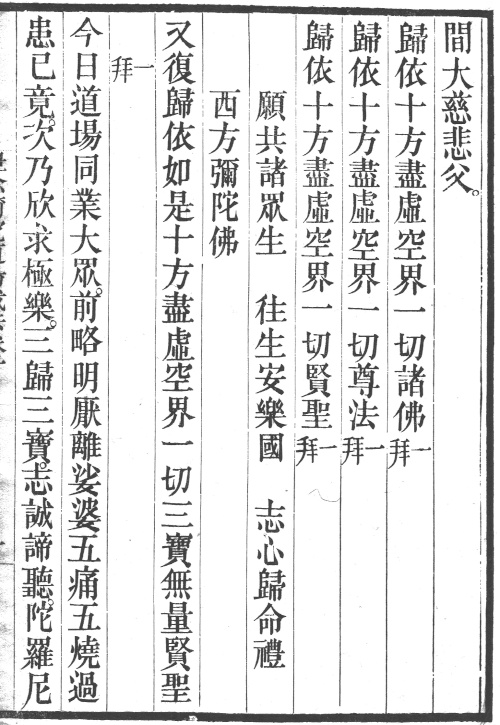 間大慈悲父。
歸依十方盡虛空界一切諸佛一拜
歸依十方盡虛空界一切尊法一拜
歸依十方盡虛空界一切賢聖一拜
願共諸眾生　往生安樂國　志心歸命禮
西方彌陀佛
又復歸依如是十方盡虛空界一切三寶無量賢聖
一拜
今日道場同業大眾。前略明厭離娑婆五痛五燒過
患已竟。次乃欣求極樂。三歸三寶。志誠諦聽。陀羅尼